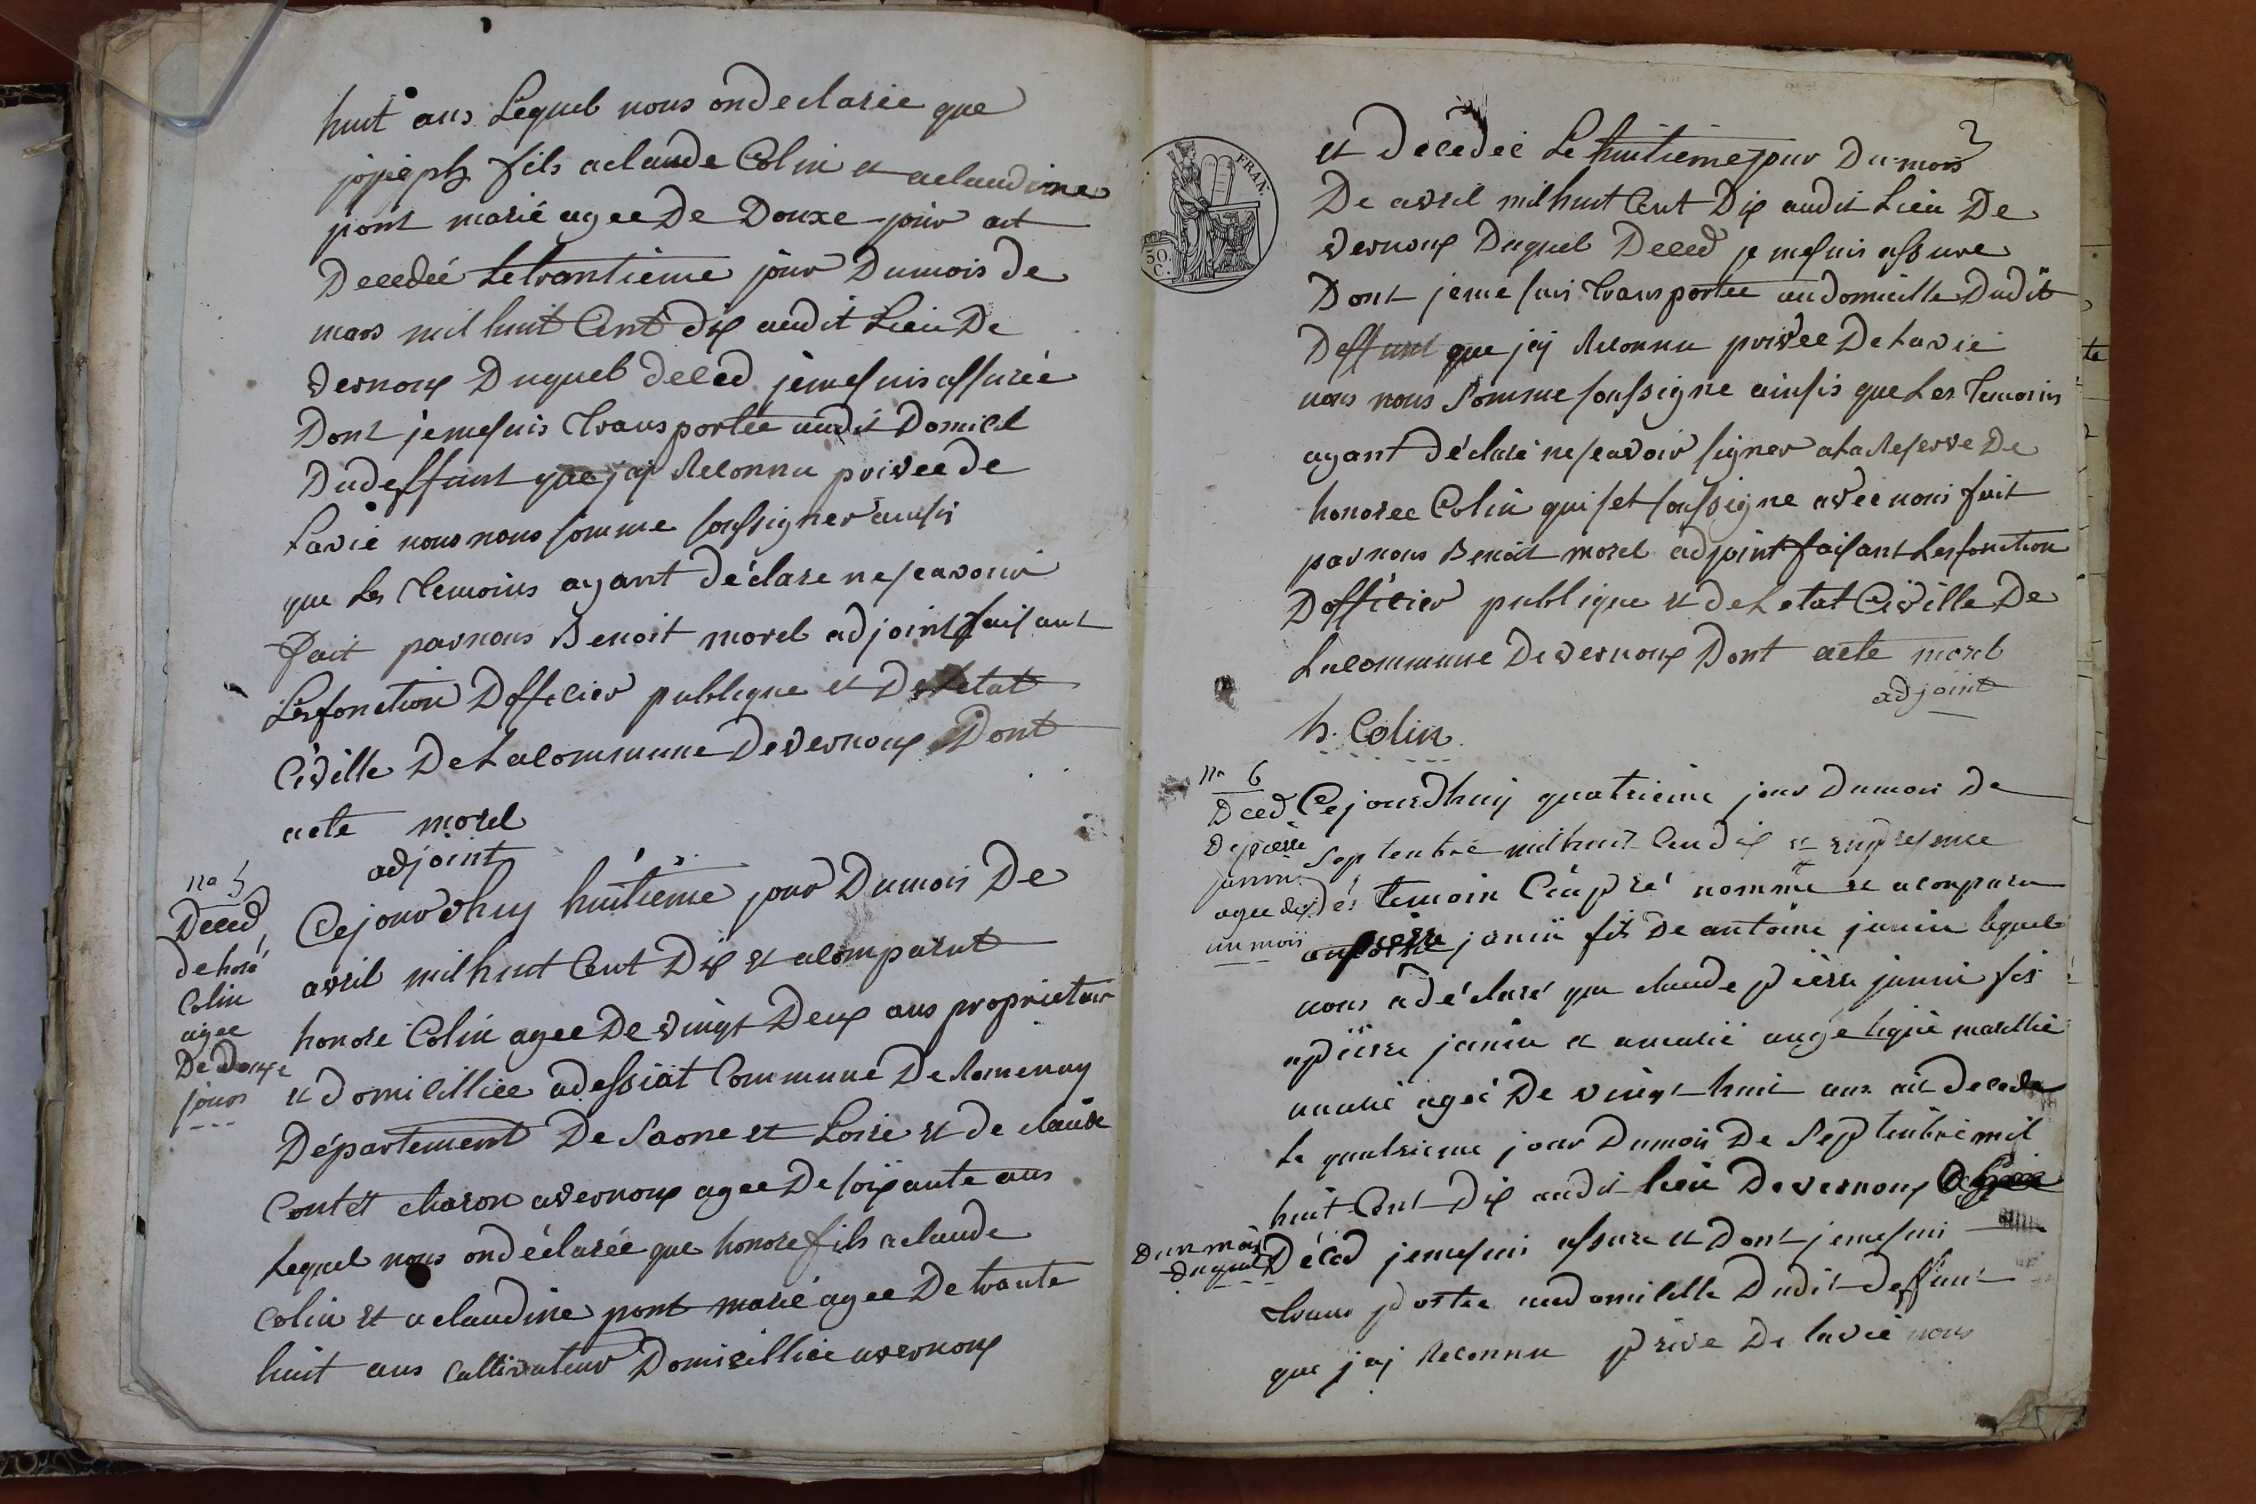 huit ans Lequel nous ondeclarée que
josseph fils aclaude Colin et aclaudine
pont marié agee De Douxe jour art
Decedeé Letrantieme jour Dumois de
mars mil huit Cent dix audit Lieu De
vernoux Duquel deced jemesuis assureé
Dont jemesuis Transportée audit Domicil
Dudeffunt que jaj Reconnu privee de
Lavie nous nous somme soussigner ainsis
que Les Temoins ayant déclare nesavoir
fait parnous Benoit morel adjoint faisant
Lesfonction Dofficier publique et De Letat
Civille De Lacommune Devernoux Dont
acte morel
adjoint
no 5
Deced
de horé
Colin
agee
De Douxe
jours
Cejourdhuy huitieme jour Dumois De
avril mil huit Cent Dix et acomparut
honore Colin agee De vingt Deux ans proprietair
et domicilliee adessiat Commune De Romenay
Département De Saone et Loire et de claude
Contet charon avernoux agee De soixante ans
Lequel nous ondéclareé que honore fils aclaude
Colin et aclaudine pont marié agee De trante
huit ans Cultivateur Domicilliee avernoux
FRAN.
50
C.
et Decedeé Le huitieme jour Du mois
De avril mil huit Cent Dix audit Lieu De
vernoux Duquel Deced je mesuis assure
Dont jeme suis Transportee audomicille Dudit
Deffunt que jaj Reconnu privee De Lavie
nous nous Somme soussigne ainsis que Les Temoins
ayant déclare nesavoir signer ala Reserve De
honoree Colin qui set soussigne avec nous fait
par nous Benoit morel adjoint faisant Lesfonction
Dofficier publique et de Letat Civille De
Lacommune De vernoux Dont acte morel
adjoint
h. Colin
no 6
Deced
De pierre
janin
agee de
un mois
Cejourdhuij quatrieme jour Dumois De
Septenbre mil huit Cendix et enpresence
Dés temoin Ciapré nommé et acomparu
pierre janin fils De antoine janin lequel
nous a déclaré que claude pierre janin fis
apierre janin et amarie angelique
marié ageé De vingt huit ans ait decede
Le quatrieme jour Dumois De Septenbre mil
huit Cent Dix audit lieu Devernoux
Dun mois
Duquel
Décéd jemesuis assure et Dont jemesuis
trans portee audomicille Dudit Deffunt
que jaj Reconnu prive De lavie nous